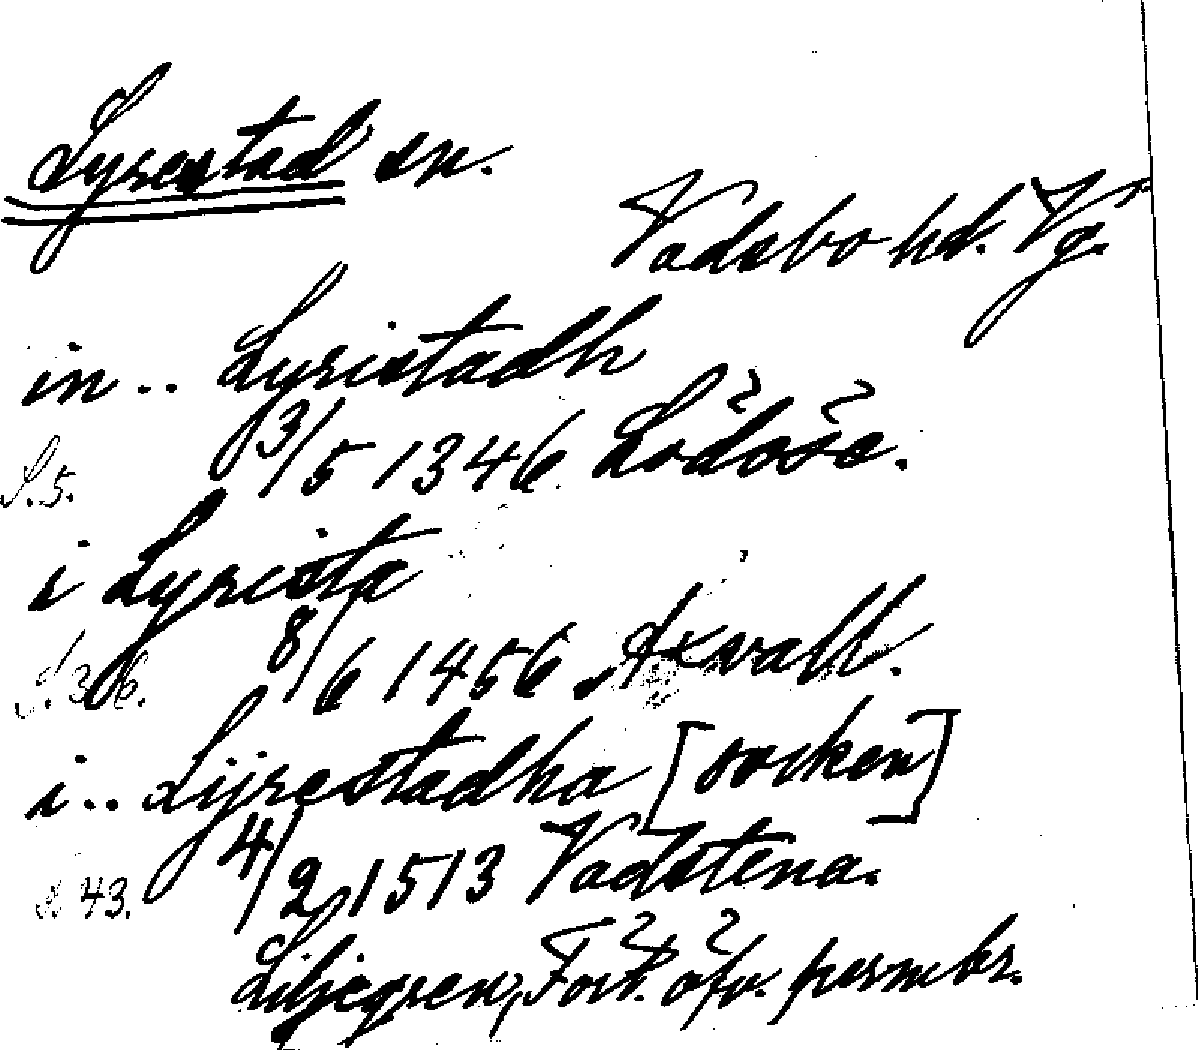 Lyrestad sn.
Vadsbo hd. Vg.
in .. Lyristadh
S. 5. 13/5 1346 Lödöse.
i Lyrista
S. 36. 8/6 1456 Axvall.
i .. Lijrestadha [socken]
S. 43. 4/2 1513 Vadstena.
Liljegren, Fört. öfv. permbr.